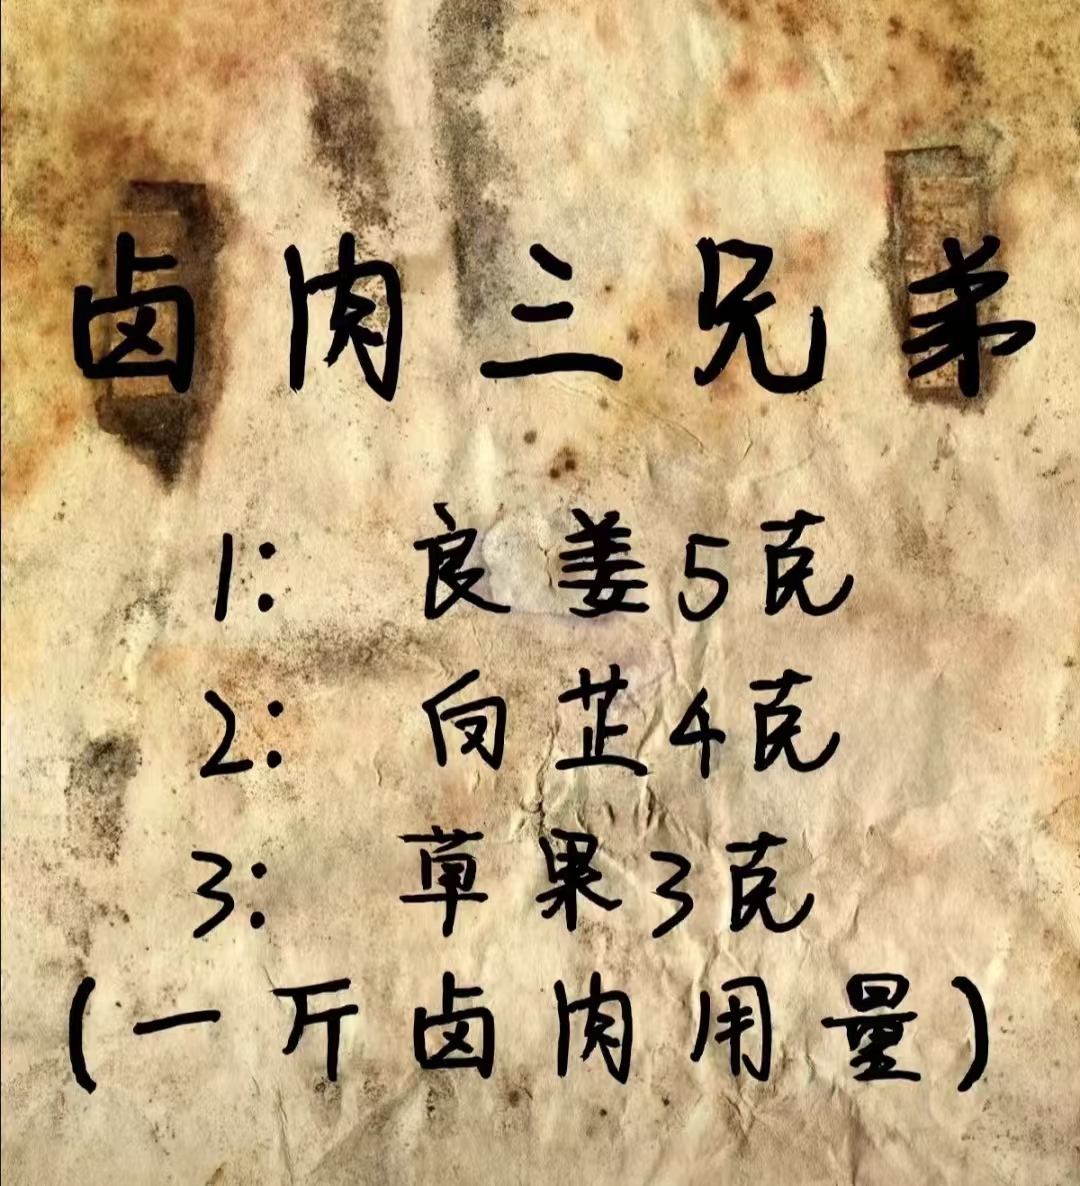 卤肉三兄弟
1: 良姜5克
2: 白芷4克
3: 草果3克
(一斤卤肉用量)